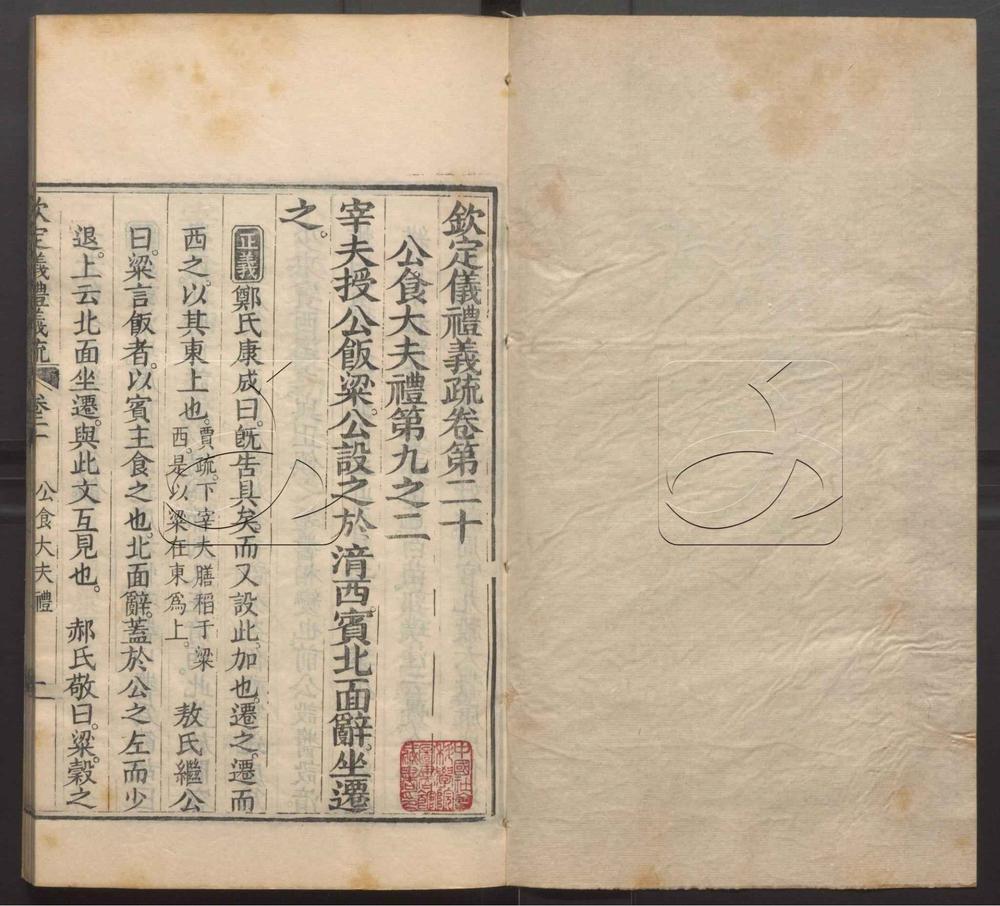 欽定儀禮義疏卷第二十
公食大夫禮第九之二
宰夫授公飯粱。公設之於湆西。賓北面辭。坐遷
之。
正義鄭氏康成曰。既告具矣。而又設此。加也。遷之。遷而
西之。以其東上也。賈疏。下宰夫膳稻于粱
西。是以粱在東為上。敖氏繼公
曰。粱言飯者。以賓主食之也。北面辭。蓋於公之左而少
退。上云北面坐遷。與此文互見也。郝氏敬曰。粱。穀之
欽定儀禮義疏 卷二 公食大夫禮 一
中國社會
科學院
圖書館
藏書印